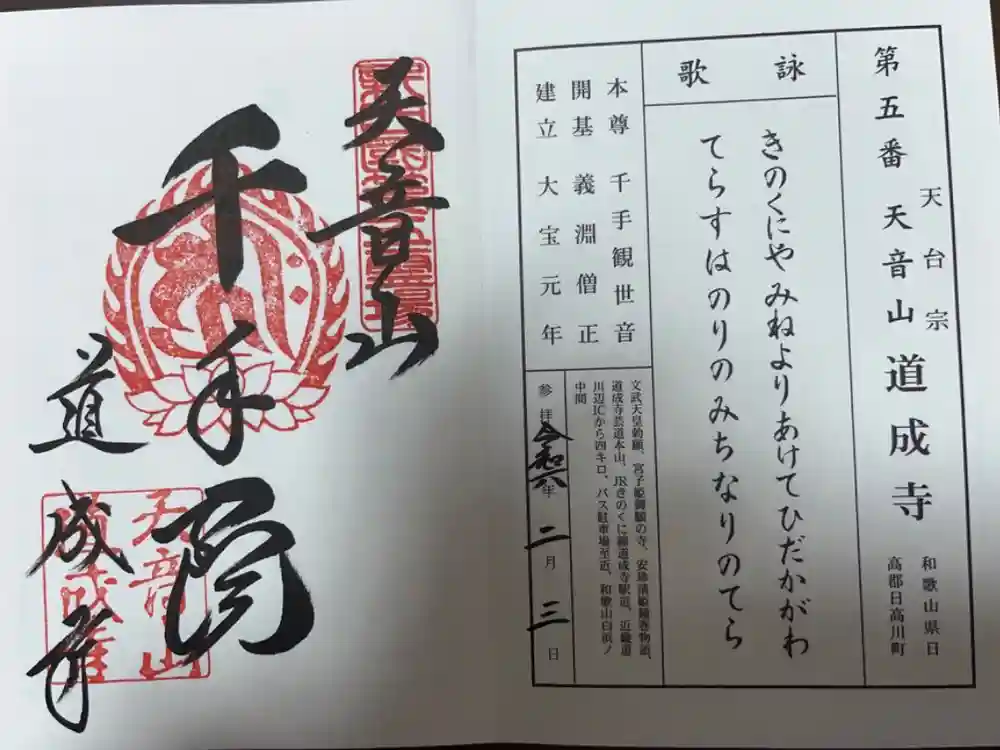 第五番 天台宗 天音山 道成寺 和歌山県日高郡日高川町
詠歌
きのくにや みねよりあけて ひだかがわ
てらすはのりの みちなりのてら
本尊 千手観世音
開基 義淵僧正
建立 大宝元年
文武天皇勅願、宮子姫御願の寺、安珍清姫縁巻物語、
道成寺芸道本山、JRきのくに線道成寺駅近、近畿道
川辺ICから四キロ、バス駐車場至近、和歌山白浜ノ
中間
参拝 令和六年 二月 三日
天音山
千手閣
道成寺